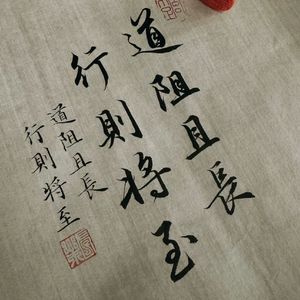 道阻且長
行則將至
道阻且長
行則將至